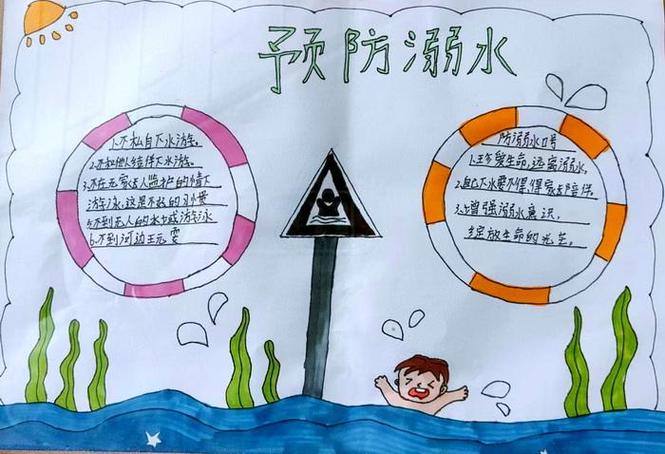 预防溺水
1.不私自下水游泳。
2.不和他人结伴下水游泳。
3.不在无家长人监护的情下
游泳
5.不到无人的水域游泳
6.不到河边玩
防溺水口号
1.珍爱生命,远离溺水,
2.自己下水要不得,家长陪伴
3.增强溺水意识,
绽放生命的光芒。